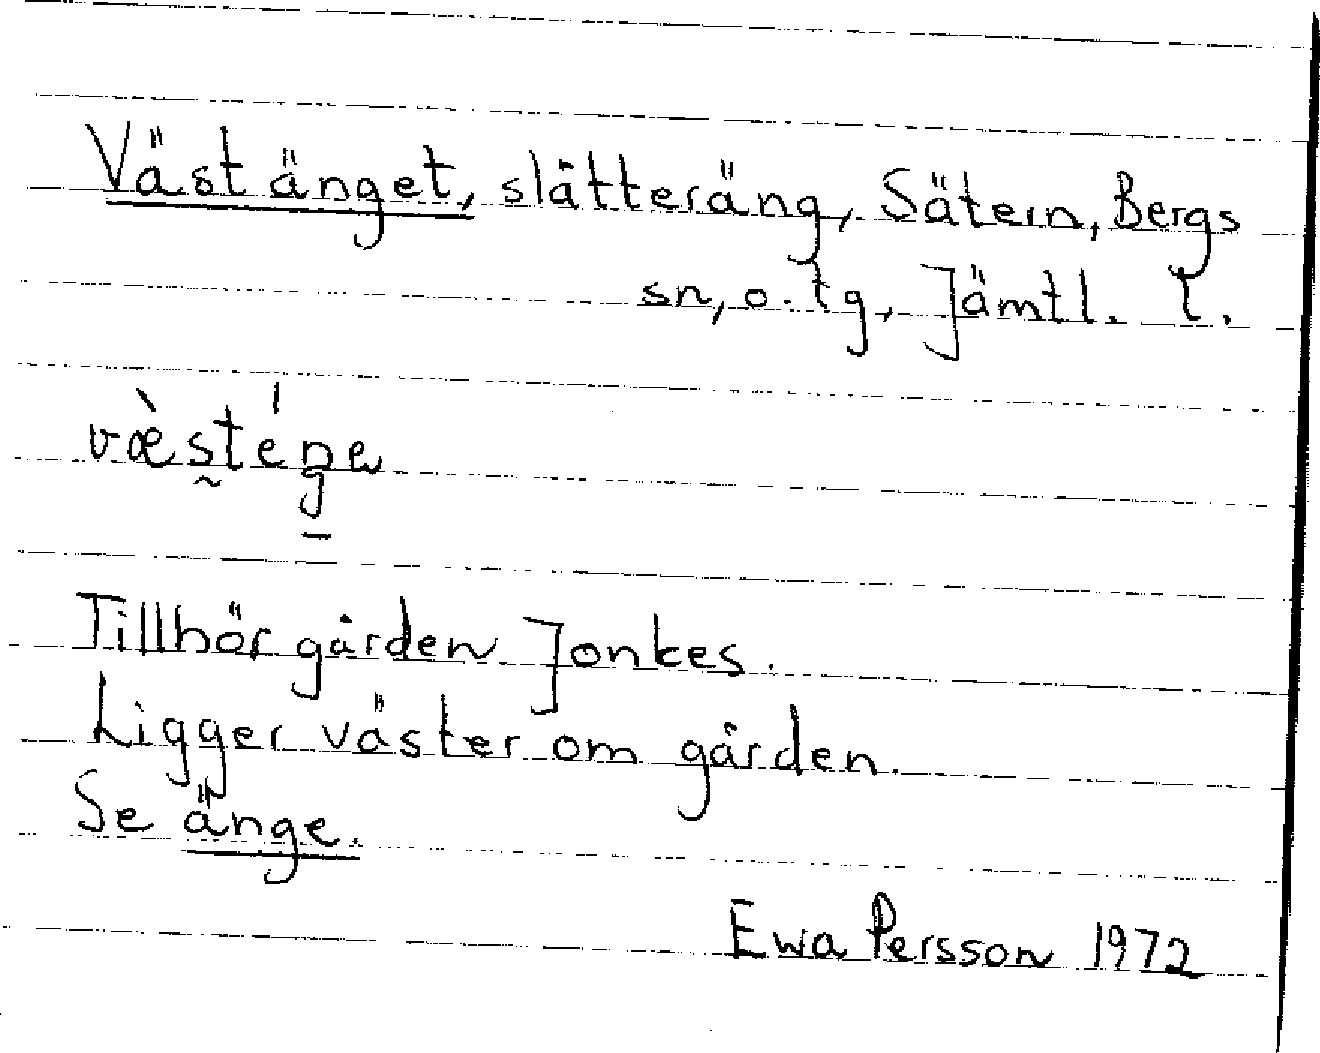 Västänget, slåtteräng, Sätern, Bergs
sn, o. tg, Jämtl. l.
Tillhör gården Jonkes.
Ligger väster om gården.
Se änge.
Ewa Persson 1972